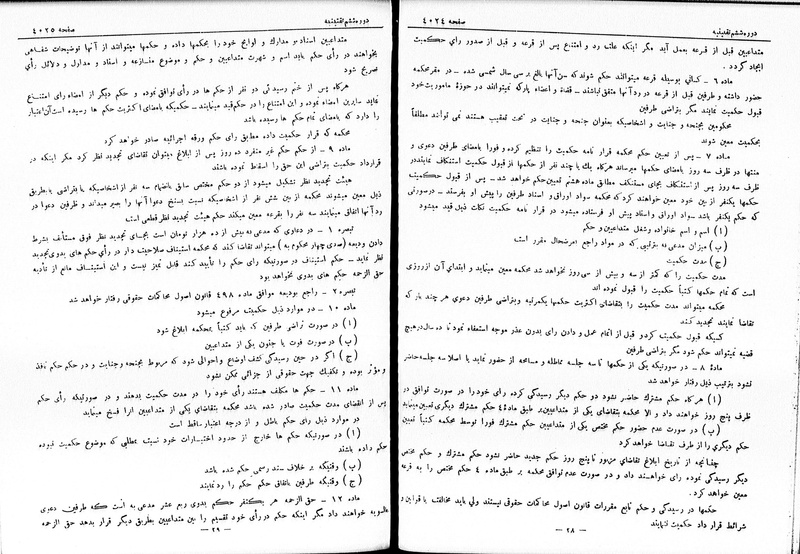 صفحه ۴۰۲۴ دوره ششم تقنینیه
متداعیین قبل از قرعه بعمل آید مگر اینکه علت رد و امتناع پس از قرعه و قبل از صدور رأی حکمیت
ایجاد گردد .
ماده ۶ – کسانی بوسیله قرعه میتوانند حکم شوند که سن آنها بالغ بر سی سال شمسی شده – در مقر محکمه
حضور داشته و طرفین قبل از قرعه در رد آنها متفق نباشند – قضاة و اعضاء پارکه نمیتوانند در حوزهٔ مأموریت خود
قبول حکمیت نمایند مگر بتراضی طرفین
محکومین بجنحه و جنایت و اشخاصیکه بعنوان جنحه و جنایت در تحت تعقیب هستند نمی توانند مطلقاً
بحکمیت معین شوند
ماده ۷ – پس از تعیین حکم محکمه قرار نامه حکمیت را تنظیم کرده و فوراً بامضای طرفین دعوی و
منتها در ظرف سه روز بامضای حکمها میرساند هرگاه یک یا چند نفر از حکمها از قبول حکمیت استنکاف نمایند در
ظرف سه روز پس از استنکاف بجای مستنکف مطابق ماده هشتم تعیین حکم خواهد شد – پس از قبول حکمیت
حکمها یکنفر از بین خود معین خواهند کرد که محکمه سواد اوراق و اسناد طرفین را پیش او بفرستد – در صورتی
که حکم یکنفر باشد سواد اوراق و اسناد پیش او فرستاده میشود در قرار نامه حکمیت نکات ذیل قید میشود
( ا ) اسم و اسم خانواده و شغل متداعیین و حکم
( ب ) میزان مدعی به بترتیبی که در مواد راجع بعرضحال مقرر است
( ج ) مدت حکمیت
مدت حکمیت را که کمتر از سه و بیش از سی روز نخواهد شد محکمه معین مینماید و ابتدای آن از روزی
است که تمام حکمها کتباً حکمیت را قبول نموده اند
محکمه میتواند مدت حکمیت را بتقاضای اکثریت حکمها یکمرتبه و بتراضی طرفین دعوی هر چند بار که
تقاضا نمایند تجدید کند
کسیکه قبول حکمیت کرد و قبل از اتمام عمل و دادن رأی بدون عذر موجه استعفاء نمود تا ده سال در هیچ
قضیه نمیتواند حکم شود مگر بتراضی طرفین
مادهٔ ۸ – در صورتیکه یکی از حکمها تا سه جلسه مماطله و مسامحه از حضور نماید یا اصلا سه جلسه حاضر
نشود بترتیب ذیل رفتار خواهد شد
( ا ) هر گاه حکم مشترک حاضر نشود دو حکم دیگر رسیدگی کرده رأی خود را در صورت توافق در
ظرف پنج روز خواهند داد و الا محکمه بتقاضای یکی از متداعیین بر طبق مادهٔ ۴ حکم مشترک دیگری تعیین مینماید
( ب ) در صورت عدم حضور حکم مختص یکی از متداعیین حکم مشترک فوراً توسط محکمه کتباً تعیین
حکم دیگری را از طرف تقاضا خواهد کرد
چنانچه از تاریخ ابلاغ تقاضای مزبور تا پنج روز حکم جدید حاضر نشود حکم مشترک و حکم مختص
دیگر رسیدگی نموده رأی خواهند داد و در صورت عدم توافق محکمه بر طبق ماده ۴ حکم مختص را به قرعه
معین خواهد کرد .
حکمها در رسیدگی و حکم تابع مقررات قانون اصول محاکمات حقوقی نیستند ولی باید مخالفت با قوانین و
شرائط قرار داد حکمیت ننمایند
– ۲۸ –
دوره ششم تقنینیه صفحه ۴۰۲۵
متداعیین اسناد و مدارک و لوایح خود را بحکمها داده و حکمها میتوانند از آنها توضیحات شفاهی
بخواهند در رأی حکم باید اسم و شهرت متداعیین و حکم و موضوع منازعه و اسناد و مدلول و دلائل رأی
تصریح شود
هرگاه پس از ختم رسیدگی دو نفر از حکم ها در رأی توافق نموده و حکم دیگر از امضاء رأی امتناع
نماید سایرین امضاء نموده و این امتناع را در حکم قید مینمایند – حکمیکه بامضای اکثریت حکم ها رسیده است آن اعتبار
را دارد که بامضای تمام حکم ها رسیده باشد
محکمه که قرار حکمیت داده مطابق رأی حکم ورقه اجرائیه صادر خواهد کرد
ماده ۹ – از حکم حکم غیر منفرد ده روز پس از ابلاغ میتوان تقاضای تجدید نظر کرد مگر اینکه در
قرارداد حکمیت بتراضی این حق را اسقاط نموده باشند
هیئت تجدید نظر تشکیل میشود از دو حکم مختص سابق بانضمام سه نفر از اشخاصیکه یا بتراضی یا بطریق
ذیل معین میشوند محکمه از بین شش نفر از اشخاصیکه نسبت بسنخ دعوا آنها را بصیر میداند و طرفین دعوا در
رد آنها اتفاق نمینمایند سه نفر را بقرعه معین میکند حکم هیئت تجدید نظر قطعی است
تبصره ۱ – در دعاوی که مدعی به بیش از ده هزار تومان است بجای تجدید نظر فوق مستأنف بشرط
دادن ودیعه (صدی چهار محکوم به) میتواند تقاضا کند که محکمه استیناف صلاحیت دار در رأی حکم های بدوی تجدید
نظر نماید – حکم استیناف در صورتیکه رأی حکم را تأیید کند قابل تمیز نیست و این استیناف مانع از تأدیه
حق الزحمه حکم های بدوی نخواهد بود
تبصره ۲ – راجع بودیعه موافق ماده ۴۹۸ قانون اصول محاکمات حقوقی رفتار خواهد شد
ماده ۱۰ – در موارد ذیل حکمیت مرفوع میشود
( ا ) در صورت تراضی طرفین که باید کتباً بمحکمه ابلاغ شود
( ب ) در صورت فوت یا جنون یکی از متداعیین
( ج ) اگر در حین رسیدگی کشف اوضاع و احوالی شود که مربوط بجنحه و جنایت و در حکم حکم نافذ
و مؤثر بوده و تفکیک جهت حقوقی از جزائی ممکن نشود
ماده ۱۱ – حکم ها مکلف هستند رأی خود را در مدت حکمیت بدهند و در صورتیکه رأی حکم
پس از انقضای مدت حکمیت صادر شده باشد محکمه بتقاضای یکی از متداعیین آنرا فسخ مینماید
در موارد ذیل رأی حکم باطل و از درجه اعتبار ساقط است
( ا ) در صورتیکه حکم ها خارج از حدود اختیارات خود نسبت بمطلبی که موضوع حکمیت نبوده
حکم داده باشند
( ب ) وقتیکه بر خلاف سند رسمی حکم شده باشد
( ج ) وقتیکه طرفین باتفاق حکم حکم را رد نمایند
ماده ۱۲ – حق الزحمه هر یکنفر حکم بدوی ربع عشر مدعی به است که طرفین دعوی
بالسویه خواهند داد مگر اینکه حکم در رأی خود تقسیم را بین متداعیین بطریق دیگر قرار بدهد حق الزحمه
– ۲۹ –